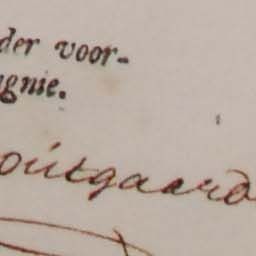 der voor-
gnie.
outgaard